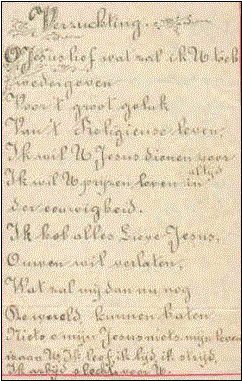 Verzuchting.
O Jesus lief wat zal ik U toch
wedergeven
Voor 't groot geluk
Van 't Religieuse leven.
Ik wil U Jesus dienen voor
altijd
Ik wil U prijzen loven in
der eeuwigheid.
Ik heb alles Lieve Jesus,
Om uwen wil verlaten,
Wat zal mij dan nu nog
De wereld, kunnen baten
Niets o mijn Jesus niets mijn leven
maar U, Ik leef, ik lijd, ik strijd,
Ik slechts voor U.